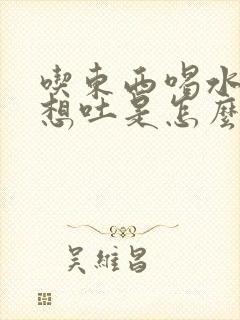 喫東西喝水
想吐是怎麼
吳維昌